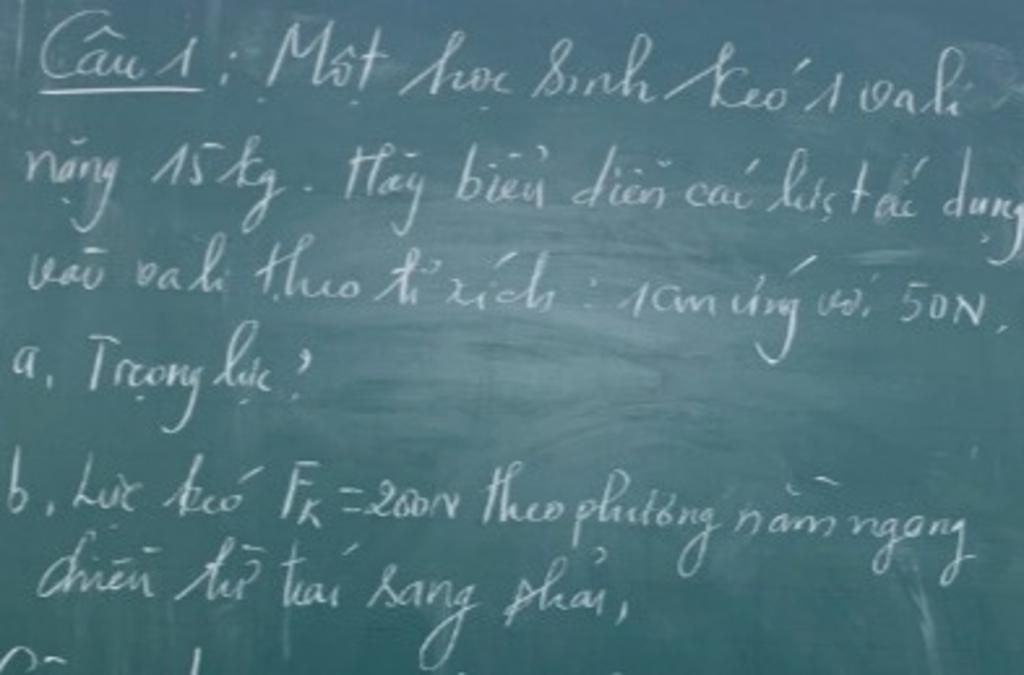 Câu 1 : Một học sinh kéo 1 vali
nặng 15kg. Hãy biểu diễn các lực tác dụng
vào vali theo tỉ xích : 1cm ứng với 50N.
a, Trọng lực?
b, Lực kéo Fk = 200N theo phương nằm ngang
chiều từ trái sang phải,